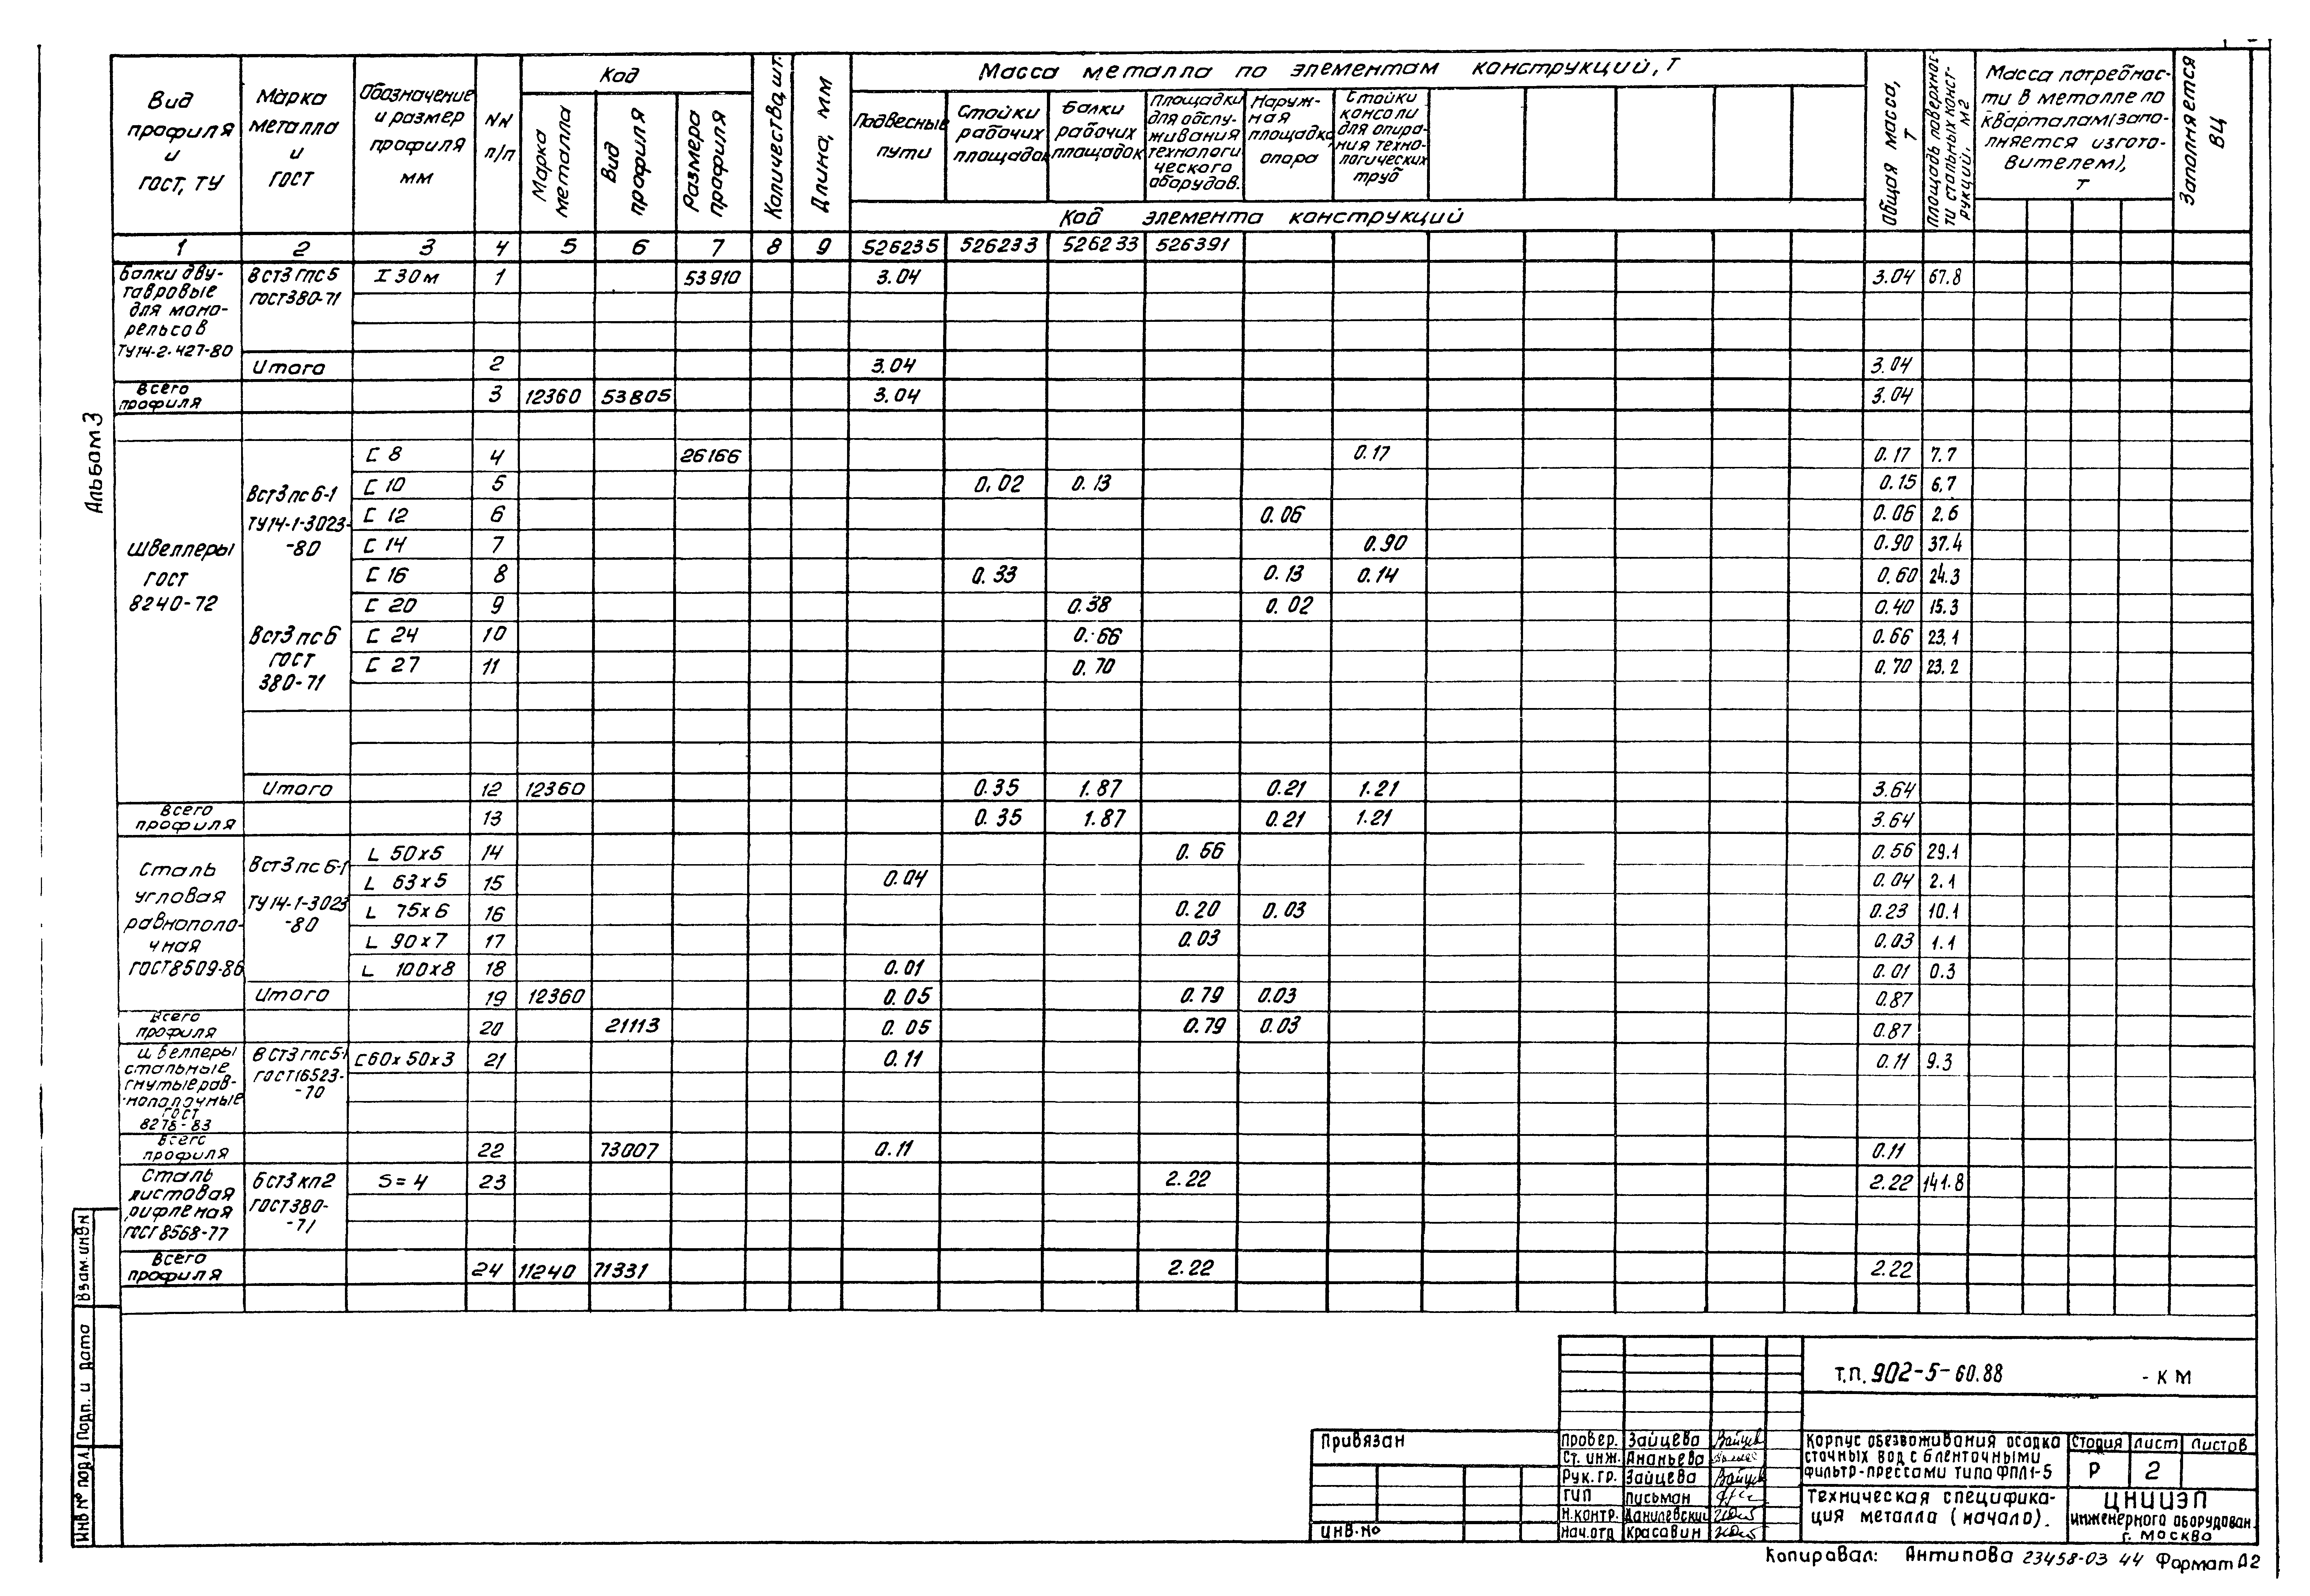 Альбом 3
Вид профиля и ГОСТ, ТУ
Марка металла и ГОСТ
Обозначение и размер профиля мм
NN п/п
Код
Марка металла
Вид профиля
Размера профиля
Количество, шт.
Длина, мм
Масса металла по элементам конструкций, Т
Подвесные пути
Стойки рабочих площадок
Балки рабочих площадок
Площадки для обслуживания технологического оборудов.
Наружная площадка, опора
Стойки консоли для опирания технологических труб
Код элемента конструкций
Общая масса, Т
Площадь поверхности стальных конструкций, м2
Масса потребности в металле по кварталам (заполняется изготовителем), т
Заполняется ВЦ
1 2 3 4 5 6 7 8 9 526235 526233 526233 526391
Балки двутавровые для монорельсов ТУ14-2-427-80
ВСт3Гпс5 ГОСТ380-71
I 30м 1 53910 3.04 3.04 67.8
Итого 2 3.04 3.04
Всего профиля 3 12360 53805 3.04 3.04
Швеллеры ГОСТ 8240-72
ВСт3пс6-1 ТУ14-1-3023-80
ВСт3пс6 ГОСТ 380-71
[ 8 4 26166 0.17 0.17 7.7
[ 10 5 0.02 0.13 0.15 6.7
[ 12 6 0.06 0.06 2.6
[ 14 7 0.90 0.90 37.4
[ 16 8 0.33 0.13 0.14 0.60 24.3
[ 20 9 0.38 0.02 0.40 15.3
[ 24 10 0.66 0.66 23.1
[ 27 11 0.70 0.70 23.2
Итого 12 12360 0.35 1.87 0.21 1.21 3.64
Всего профиля 13 0.35 1.87 0.21 1.21 3.64
Сталь угловая равнополочная ГОСТ8509-86
ВСт3пс6-1 ТУ14-1-3023-80
L 50x5 14 0.56 0.56 29.1
L 63x5 15 0.04 0.04 2.1
L 75x6 16 0.20 0.03 0.23 10.1
L 90x7 17 0.03 0.03 1.1
L 100x8 18 0.01 0.01 0.3
Итого 19 12360 0.05 0.79 0.03 0.87
Всего профиля 20 21113 0.05 0.79 0.03 0.87
Швеллеры стальные гнутые равнополочные ГОСТ 8278-83
ВСТ3Гпс5-1 ГОСТ16523-70
[60x50x3 21 0.11 0.11 9.3
Всего профиля 22 73007 0.11 0.11
Сталь листовая рифленая ГОСТ 8568-77
БСт3кп2 ГОСТ380-71
S=4 23 2.22 2.22 141.8
Всего профиля 24 11240 71331 2.22 2.22
Взам.инв.N
Подп. и дата
Инв № подл.
Привязан
Инв.№
Провер. Зайцева
Ст. инж. Ананьева
Рук.гр. Зайцева
ГИП Письман
Н.контр. Данилевский
Нач.отд Красавин
Т.П. 902-5-60.88 -КМ
Корпус обезвоживания осадка
сточных вод с 6 ленточными
фильтр-прессами типа ФПЛ1-5
Стадия Лист Листов
Р 2
Техническая спецификация металла (начало).
ЦНИИЭП
инженерного оборудован.
г. Москва
Копировал: Антипова 23458-03 44 Формат А2